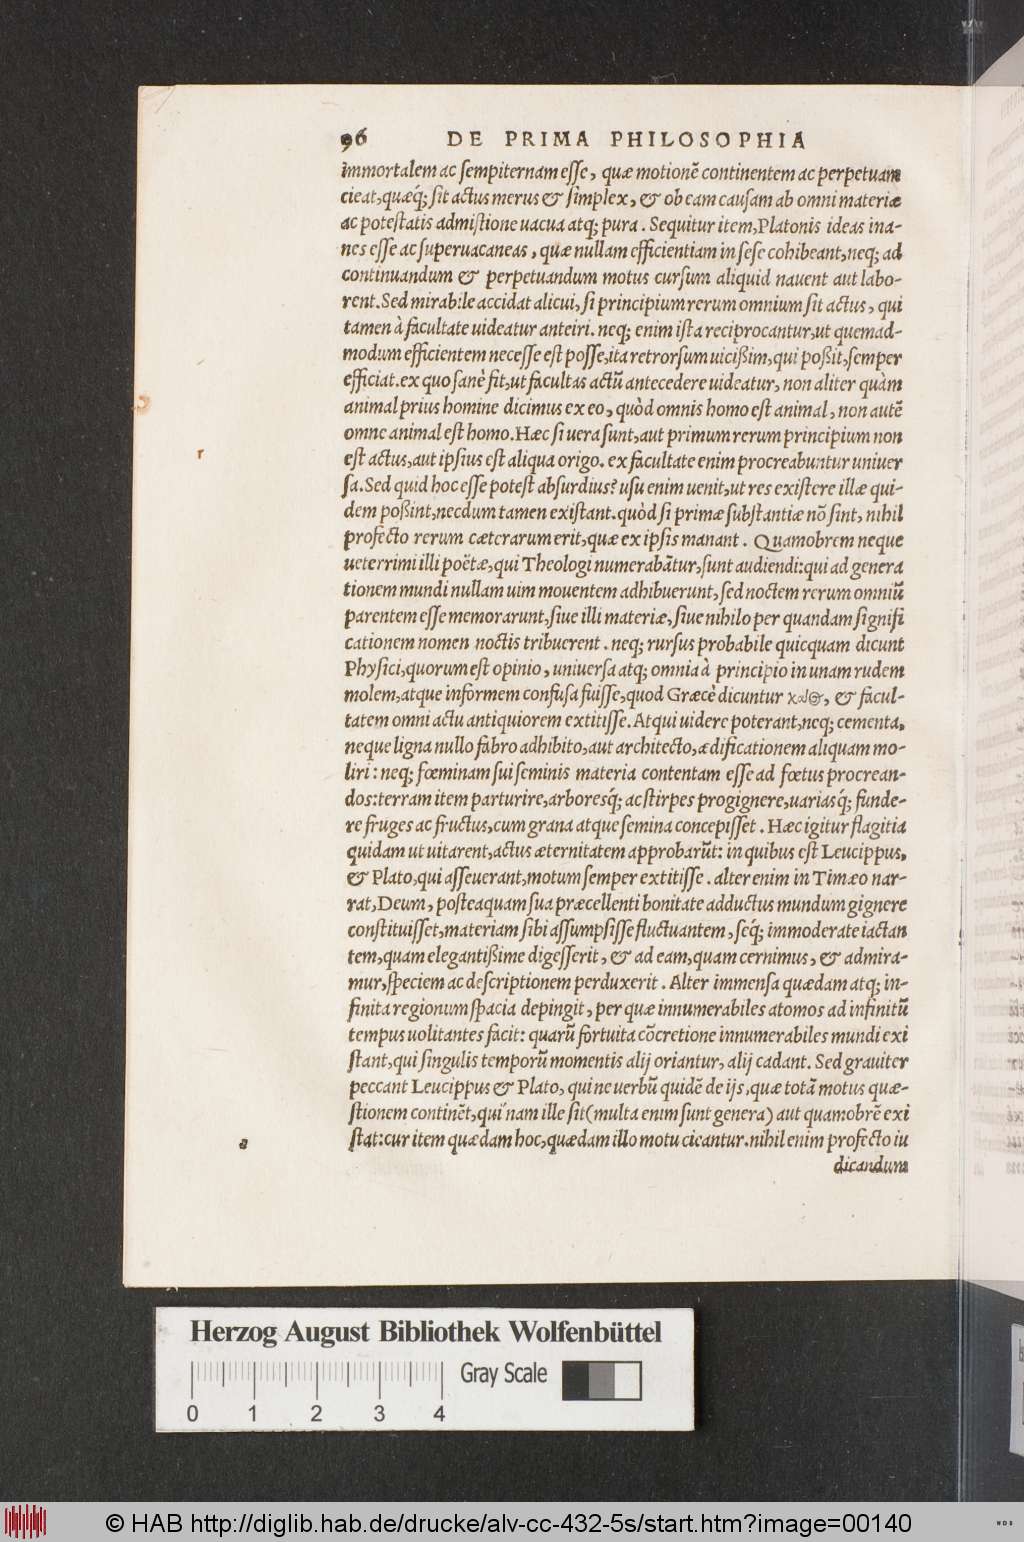 96 DE PRIMA PHILOSOPHIA
immortalem ac sempiternam esse, quæ motionē continentem ac perpetuam
cieat, quæq́; sit actus merus & simplex, & ob eam causam ab omni materiæ
ac potestatis admistione uacua atq; pura. Sequitur item, Platonis ideas ina-
nes esse ac superuacaneas, quæ nullam efficientiam in sese cohibeant, neq; ad
continuandum & perpetuandum motus cursum aliquid nauent aut labo-
rent. Sed mirabile accidat alicui, si principium rerum omnium sit actus, qui
tamen à facultate uideatur anteiri. neq; enim ista reciprocantur, ut quemad-
modum efficientem necesse est posse, ita retrorsum uicißim, qui poßit, semper
efficiat. ex quo sanè fit, ut facultas actū antecedere uideatur, non aliter quàm
animal prius homine dicimus ex eo, quòd omnis homo est animal, non autē
omne animal est homo. Hæc si uera sunt, aut primum rerum principium non
est actus, aut ipsius est aliqua origo. ex facultate enim procreabuntur uniuer
sa. Sed quid hoc esse potest absurdius? usu enim uenit, ut res existere illæ qui-
dem poßint, necdum tamen existant. quòd si primæ substantiæ nō sint, nihil
profecto rerum cæterarum erit, quæ ex ipsis manant. Quamobrem neque
ueterrimi illi poëtæ, qui Theologi numerabātur, sunt audiendi: qui ad genera
tionem mundi nullam uim mouentem adhibuerunt, sed noctem rerum omniū
parentem esse memorarunt, siue illi materiæ, siue nihilo per quandam signifi
cationem nomen noctis tribuerent. neq; rursus probabile quicquam dicunt
Physici, quorum est opinio, uniuersa atq; omnia à principio in unam rudem
molem, atque informem confusa fuisse, quod Græcè dicuntur χάος, & facul-
tatem omni actu antiquiorem extitisse. Atqui uidere poterant, neq; cementa,
neque ligna nullo fabro adhibito, aut architecto, ædificationem aliquam mo-
liri: neq; fœminam sui seminis materia contentam esse ad fœtus procrean-
dos: terram item parturire, arboresq́; ac stirpes progignere, uariasq́; funde-
re fruges ac fructus, cum grana atque semina concepisset. Hæc igitur flagitia
quidam ut uitarent, actus æternitatem approbarūt: in quibus est Leucippus,
& Plato, qui asseuerant, motum semper extitisse. alter enim in Timæo nar-
rat, Deum, posteaquam sua præcellenti bonitate adductus mundum gignere
constituisset, materiam sibi assumpsisse fluctuantem, seq́; immoderate iactan
tem, quam elegantißime digesserit, & ad eam, quam cernimus, & admira-
mur, speciem ac descriptionem perduxerit. Alter immensa quædam atq; in-
finita regionum spacia depingit, per quæ innumerabiles atomos ad infinitū
tempus uolitantes facit: quarū fortuita cōcretione innumerabiles mundi exi
stant, qui singulis temporū momentis alij oriantur, alij cadant. Sed grauiter
peccant Leucippus & Plato, qui ne uerbū quidē de ijs, quæ totā motus quæ-
stionem continēt, qui nam ille sit (multa enim sunt genera) aut quamobrē exi
stat: cur item quædam hoc, quædam illo motu cieantur. nihil enim profecto iu
dicandum
Herzog August Bibliothek Wolfenbüttel
Gray Scale
0 1 2 3 4
© HAB http://diglib.hab.de/drucke/alv-cc-432-5s/start.htm?image=00140